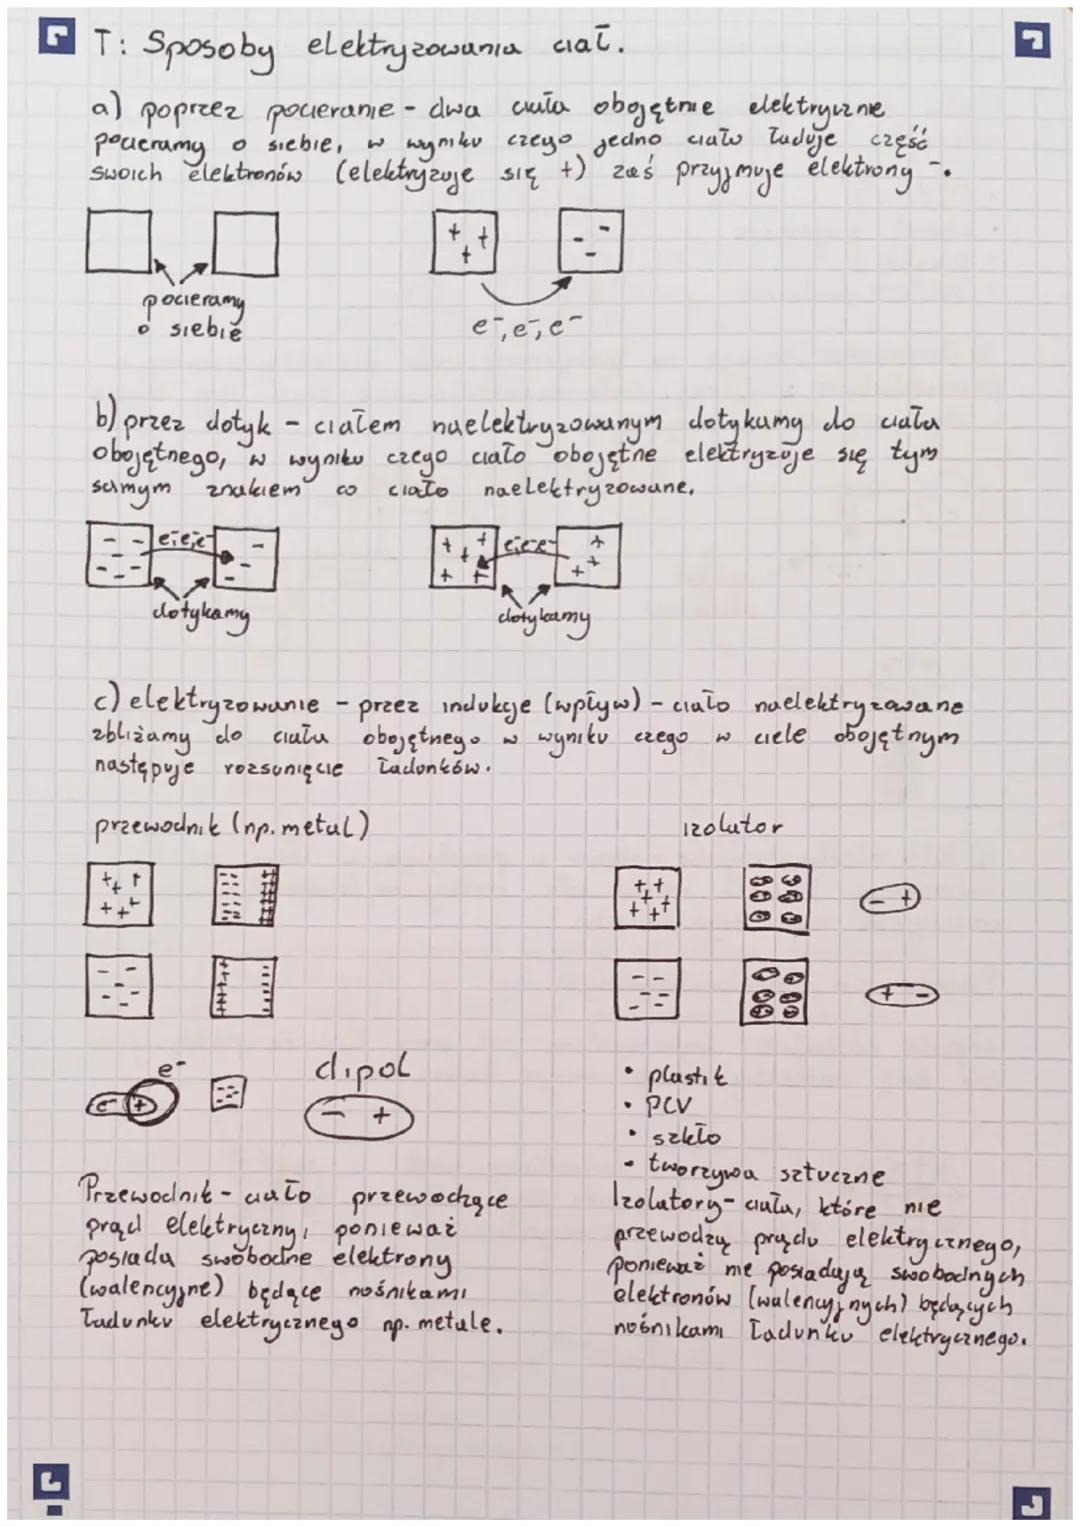 T: Sposoby elektryzowania ciał.
a) poprzez pocieranie - dwa ciała obojętnie elektrycznie
pocieramy o siebie, w wyniku czego jedno ciało ładuje część
swoich elektronów (elektryzuje się +) zaś przyjmuje elektrony -.
+ + +
- - -
pocieramy
o siebie
e⁻, e⁻, e⁻
b) przez dotyk - ciałem naelektryzowanym dotykamy do ciała
obojętnego, w wyniku czego ciało obojętne elektryzuje się tym
samym znakiem co ciało naelektryzowane.
e⁻e⁻e⁻
e⁻e⁻e⁻
dotykamy
dotykamy
c) elektryzowanie - przez indukcje (wpływ) - ciało naelektryzowane
zbliżamy do ciała obojętnego w wyniku czego w ciele obojętnym
następuje rozsunięcie ładunków.
przewodnik (np. metal)
izolator
- +
+ -
e⁻
dipol
e⁻ +
- +
• plastik
• PCV
• szkło
• tworzywa sztuczne
Przewodnik - ciało przewodzące
prąd elektryczny, ponieważ
posiada swobodne elektrony
(walencyjne) będące nośnikami
ładunku elektrycznego np. metale.
Izolatory - ciała, które nie
przewodzą prądu elektrycznego,
ponieważ nie posiadają swobodnych
elektronów (walencyjnych) będących
nośnikami ładunku elektrycznego.